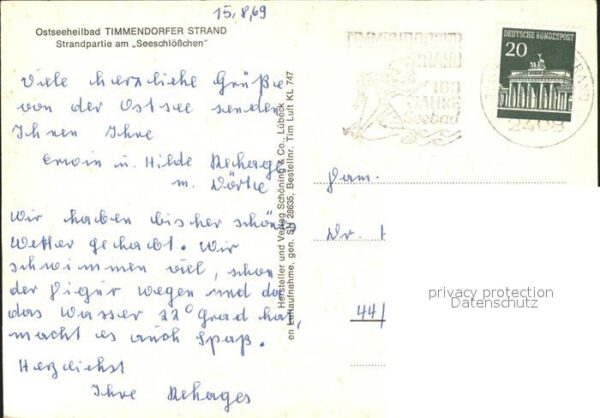 15.8.69
Ostseeheilbad TIMMENDORFER STRAND
Strandpartie am „Seeschlößchen“
Viele herzliche Grüße
von der Ostsee senden
Ihnen Ihre
Erwin u. Hilde Rehage
m. Dörte
Wir haben bisher schön
Wetter gehabt. Wir
schwimmen viel, schon
der Figur wegen und da
das Wasser 22° Grad hat,
macht es auch Spaß.
Herzlichst
Ihre Rehages
Hersteller und Verlag Schöning & Co., Lübeck
en Luftaufnahme, gen. SH 28635, Bestellnr. Tim Luft KL 747
TIMMENDORFER
STRAND
100
JAHRE
Seebad
DEUTSCHE BUNDESPOST
20
STRAND
2408
Fam.
Dr.
44
privacy protection
Datenschutz